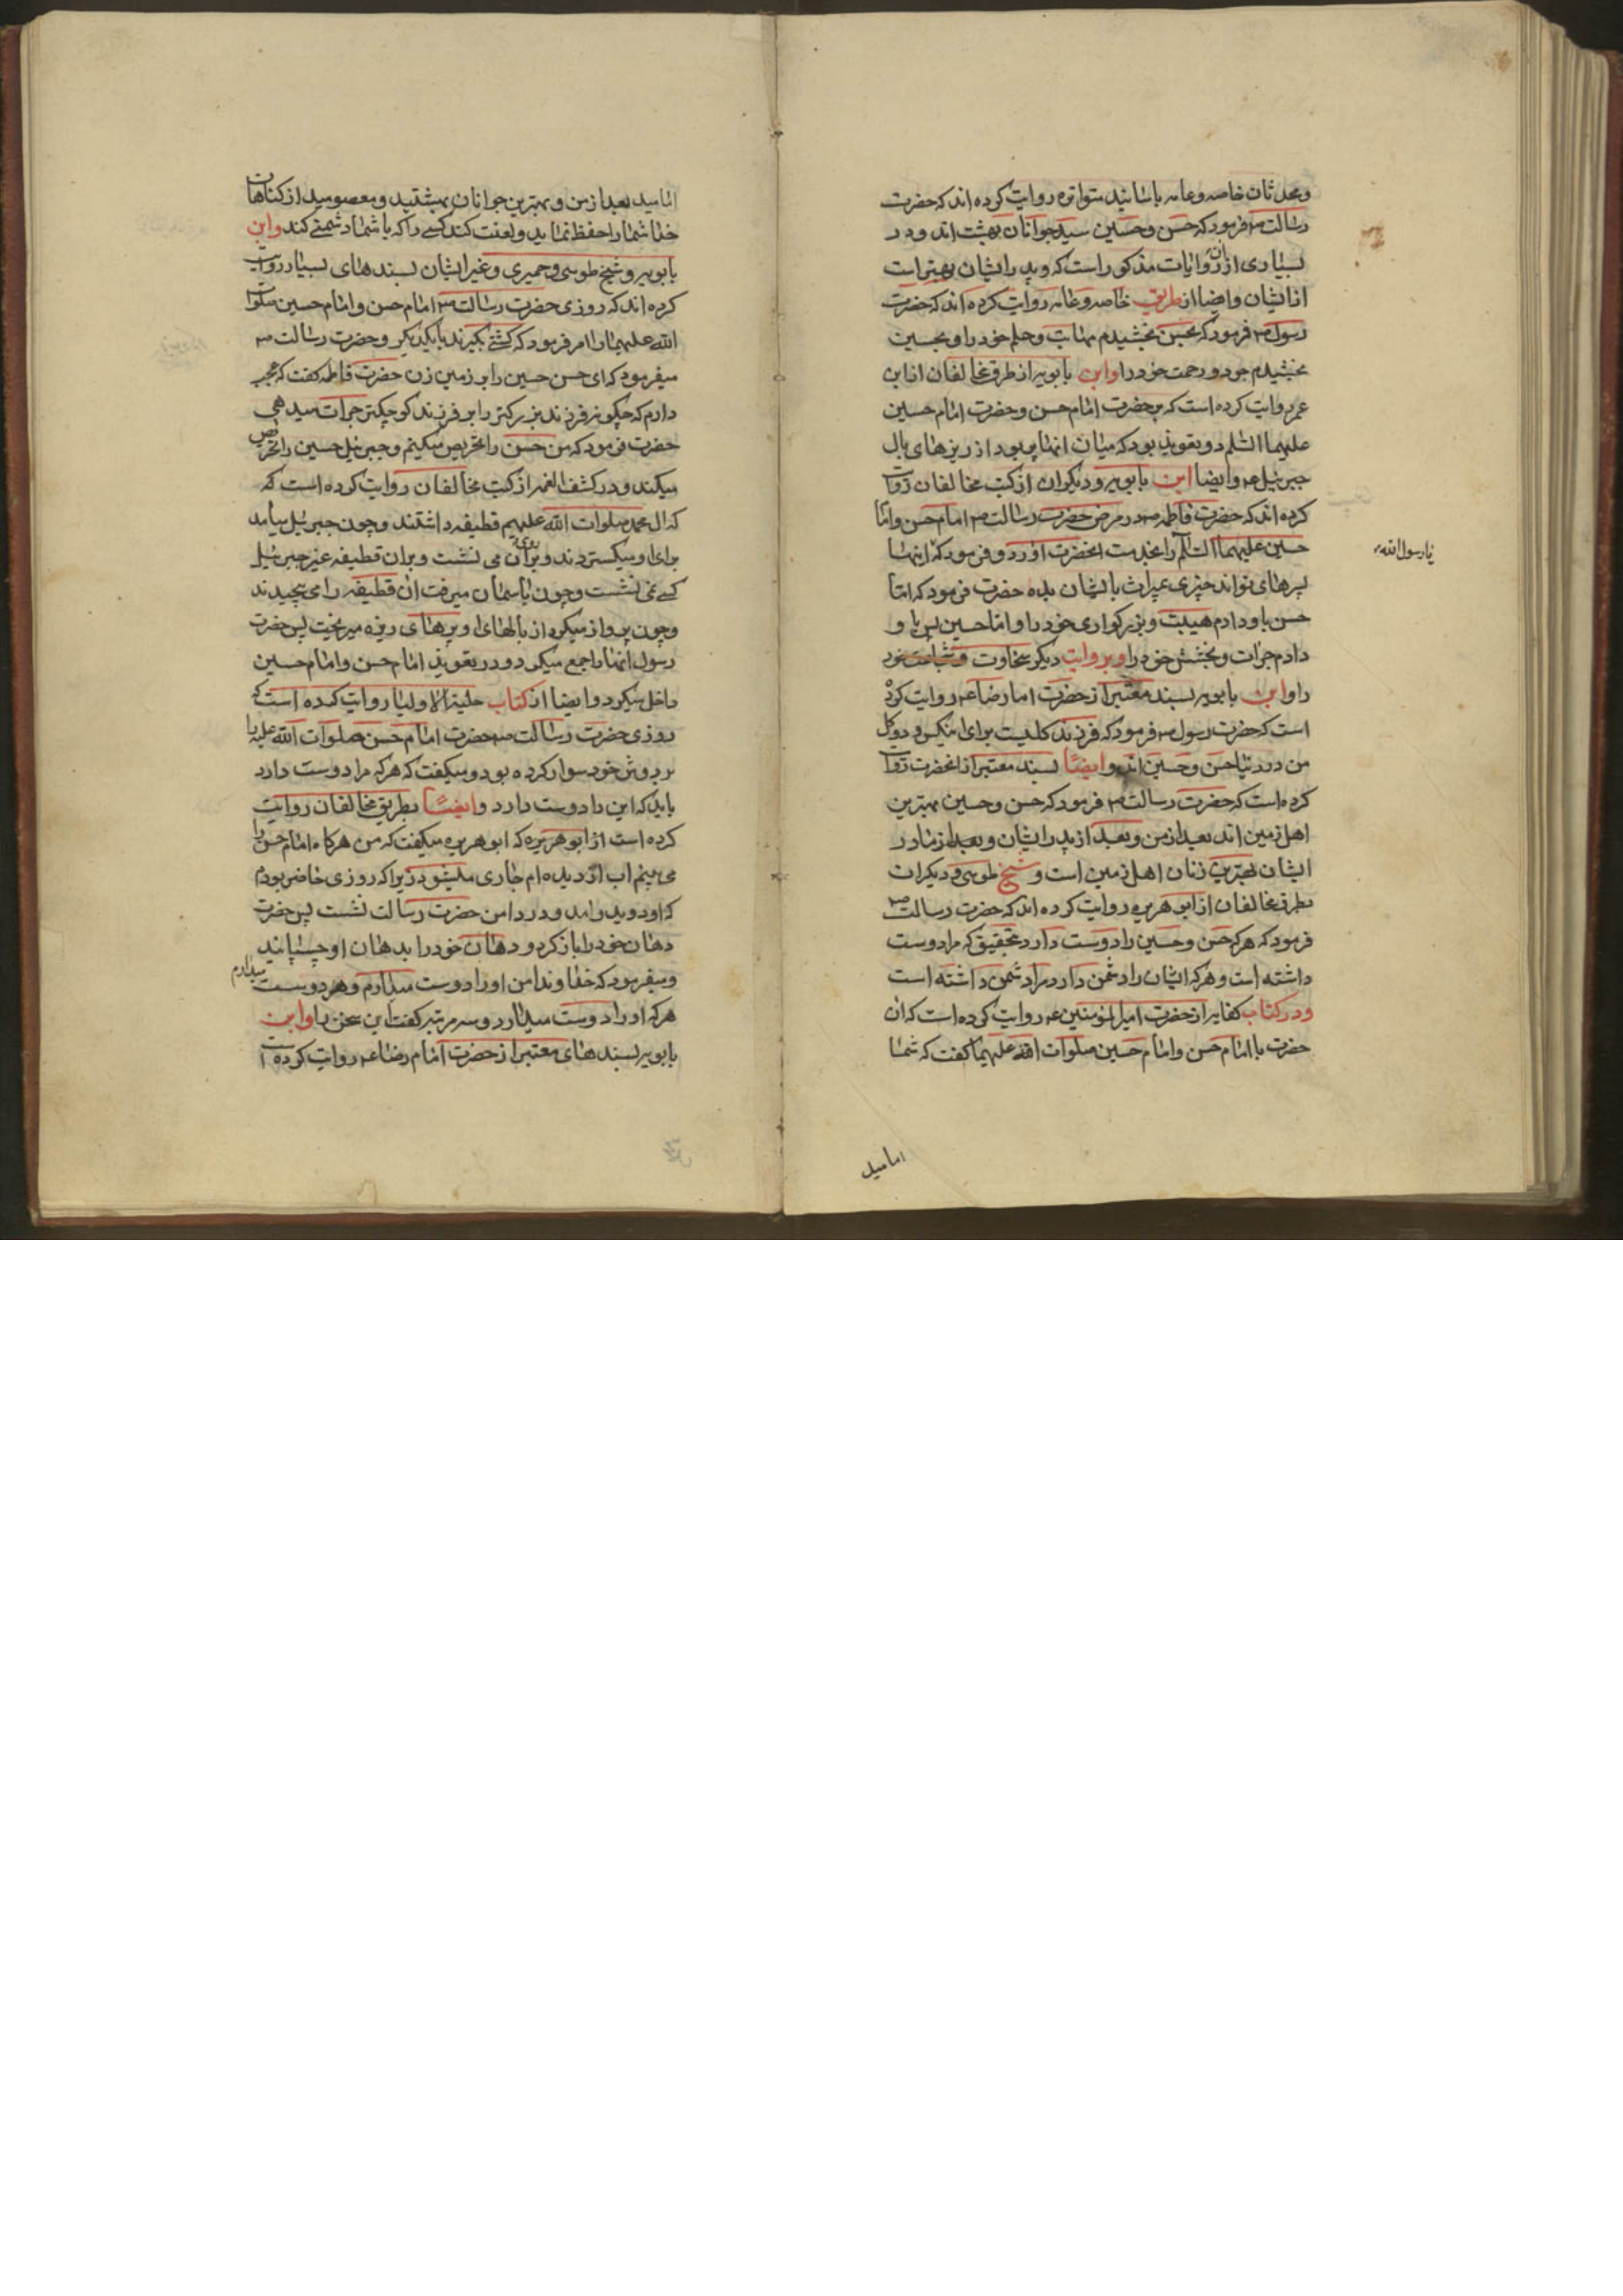 ومحدثان خاصه وعامه باسانید متواتره روایت کرده اند که حضرت
رسالت ص فرمود که حسن و حسین سید جوانان بهشت اند و در
بسیاری ازان روایات مذکور است که و پدر ایشان بهتر است
از ایشان وایضا از طریق خاصه وعامه روایت کرده اند که حضرت
رسول ص فرمود که بحسن بخشیدم مهابت وحلم خود را و بحسین
بخشیدم جود و رحمت خود را وابن بابویه از طرق مخالفان از ابن
عمر روایت کرده است که بر حضرت امام حسن وحضرت امام حسین
علیهما السلم دو تعویذ بود که میان انها پر بود از ریزهای بال
جبرئیل ع وایضا ابن بابویه و دیگران از کتب مخالفان روایت
کرده اند که حضرت فاطمه ص در مرض حضرت رسالت ص امام حسن واما
حسین علیهما السلم را بخدمت انحضرت اورد و فرمود که اینها
یا رسول الله
پسرهای تواند چیزی بمیراث بایشان بده حضرت فرمود که اما
حسن باو دادم هیبت و بزرگواری خود را و اما حسین پس باو
دادم جرات و بخشش خود را و بروایت دیگر سخاوت وشجاعت خود
را وابن بابویه بسند معتبر از حضرت امام رضا ع روایت کرده
است که حضرت رسول ص فرمود که فرزند کلیست برای انیکس و دو کل
من در دنیا حسن وحسین اند وایضا بسند معتبر از انحضرت روایت
کرده است که حضرت رسالت ص فرمود که حسن و حسین بهترین
اهل زمین اند بعد از من و بعد از پدر ایشان و بعد از مادر
ایشان بهترین زنان اهل زمین است و شیخ طوسی و دیگران
بطرق مخالفان از ابو هریره روایت کرده اند که حضرت رسالت ص
فرمود که هرکه حسن و حسین را دوست دارد بتحقیق که مرا دوست
داشته است و هرکه ایشان را دشمن دارد مرا دشمن داشته است
و در کتاب کفایه از حضرت امیر المؤمنین ع روایت کرده است که ان
حضرت با امام حسن وامام حسین صلوات الله علیهما گفت که شما
امامید
امامید بعد از من و بهترین جوانان بهشتید و معصومید از کناهان
خدا شما را حفظ نماید و لعنت کند کسی را که با شما دشمنی کند وابن
بابویه و شیخ طوسی و حمیری و غیر ایشان بسندهای بسیار روایت
کرده اند که روزی حضرت رسالت ص امام حسن وامام حسین صلوات
الله علیهما را امر فرمود که کشتی بگیرند بایکدیگر و حضرت رسالت ص
میفرمود که ای حسن حسین را بر زمین زن حضرت فاطمه گفت که عجب
دارم که چگونه فرزند بزرگتر را بر فرزند کوچکتر جرات میدهی
حضرت فرمود که من حسن را تحریص میکنم و جبرئیل حسین را تحریص
میکند و در کشف الغمه از کتب مخالفان روایت کرده است که
که ال محمد صلوات الله علیهم قطیفه داشتند و چون جبرئیل میآمد
برای او میگستردند و بر روی آن می نشست و بران قطیفه غیر جبرئیل
کسی نمی نشست و چون باسمان میرفت ان قطیفه را می پیچیدند
و چون پرواز میکرد از بالهای او پرهای ریزه میریخت پس حضرت
رسول انها را جمع میکرد و در تعویذ امام حسن وامام حسین
داخل میکرد وایضا از کتاب حلیة الاولیا روایت کرده است که
روزی حضرت رسالت ص حضرت امام حسن صلوات الله علیه را
بر دوش خود سوار کرده بود و میگفت که هرکه مرا دوست دارد
باید که این را دوست دارد وایضا بطریق مخالفان روایت
کرده است از ابو هریره که ابو هریره میگفت که من هرگاه امام حسن را
می بینم اب از دیده ام جاری میشود زیرا که روزی حاضر بودم
که او دوید وامد و در دامن حضرت رسالت نشست پس حضرت
دهان خود را باز کرد و دهان خود را بدهان او چسپانید
و میفرمود که خداوندا من او را دوست میدارم و هر دوست میدارم
هرکه او را دوست میدارد و سه مرتبه گفت این سخن را وابن
بابویه بسندهای معتبر از حضرت امام رضا ع روایت کرده است